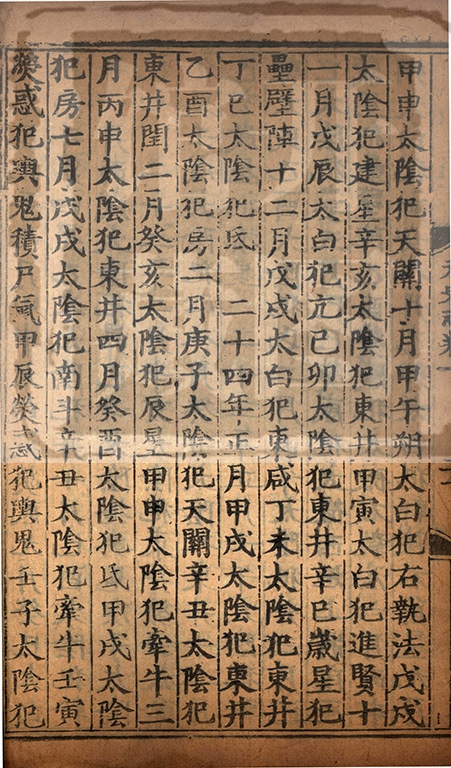 甲申太陰犯天關十月甲午朔太白犯右執法戊戌
太陰犯建星辛亥太陰犯東井甲寅太白犯進賢十
一月戊辰太白犯亢己卯太陰犯東井辛巳歲星犯
壘壁陣十二月戊戌太白犯東咸丁未太陰犯東井
丁巳太陰犯氐 二十四年正月甲戌太陰犯東井
乙酉太陰犯房二月庚子太陰犯天關辛丑太陰犯
東井閏二月癸亥太陰犯辰星甲申太陰犯牽牛三
月丙申太陰犯東井四月癸酉太陰犯氐甲戌太陰
犯房七月戊戌太陰犯南斗辛丑太陰犯牽牛壬寅
熒惑犯輿鬼積尸氣甲辰熒惑犯輿鬼壬子太陰犯